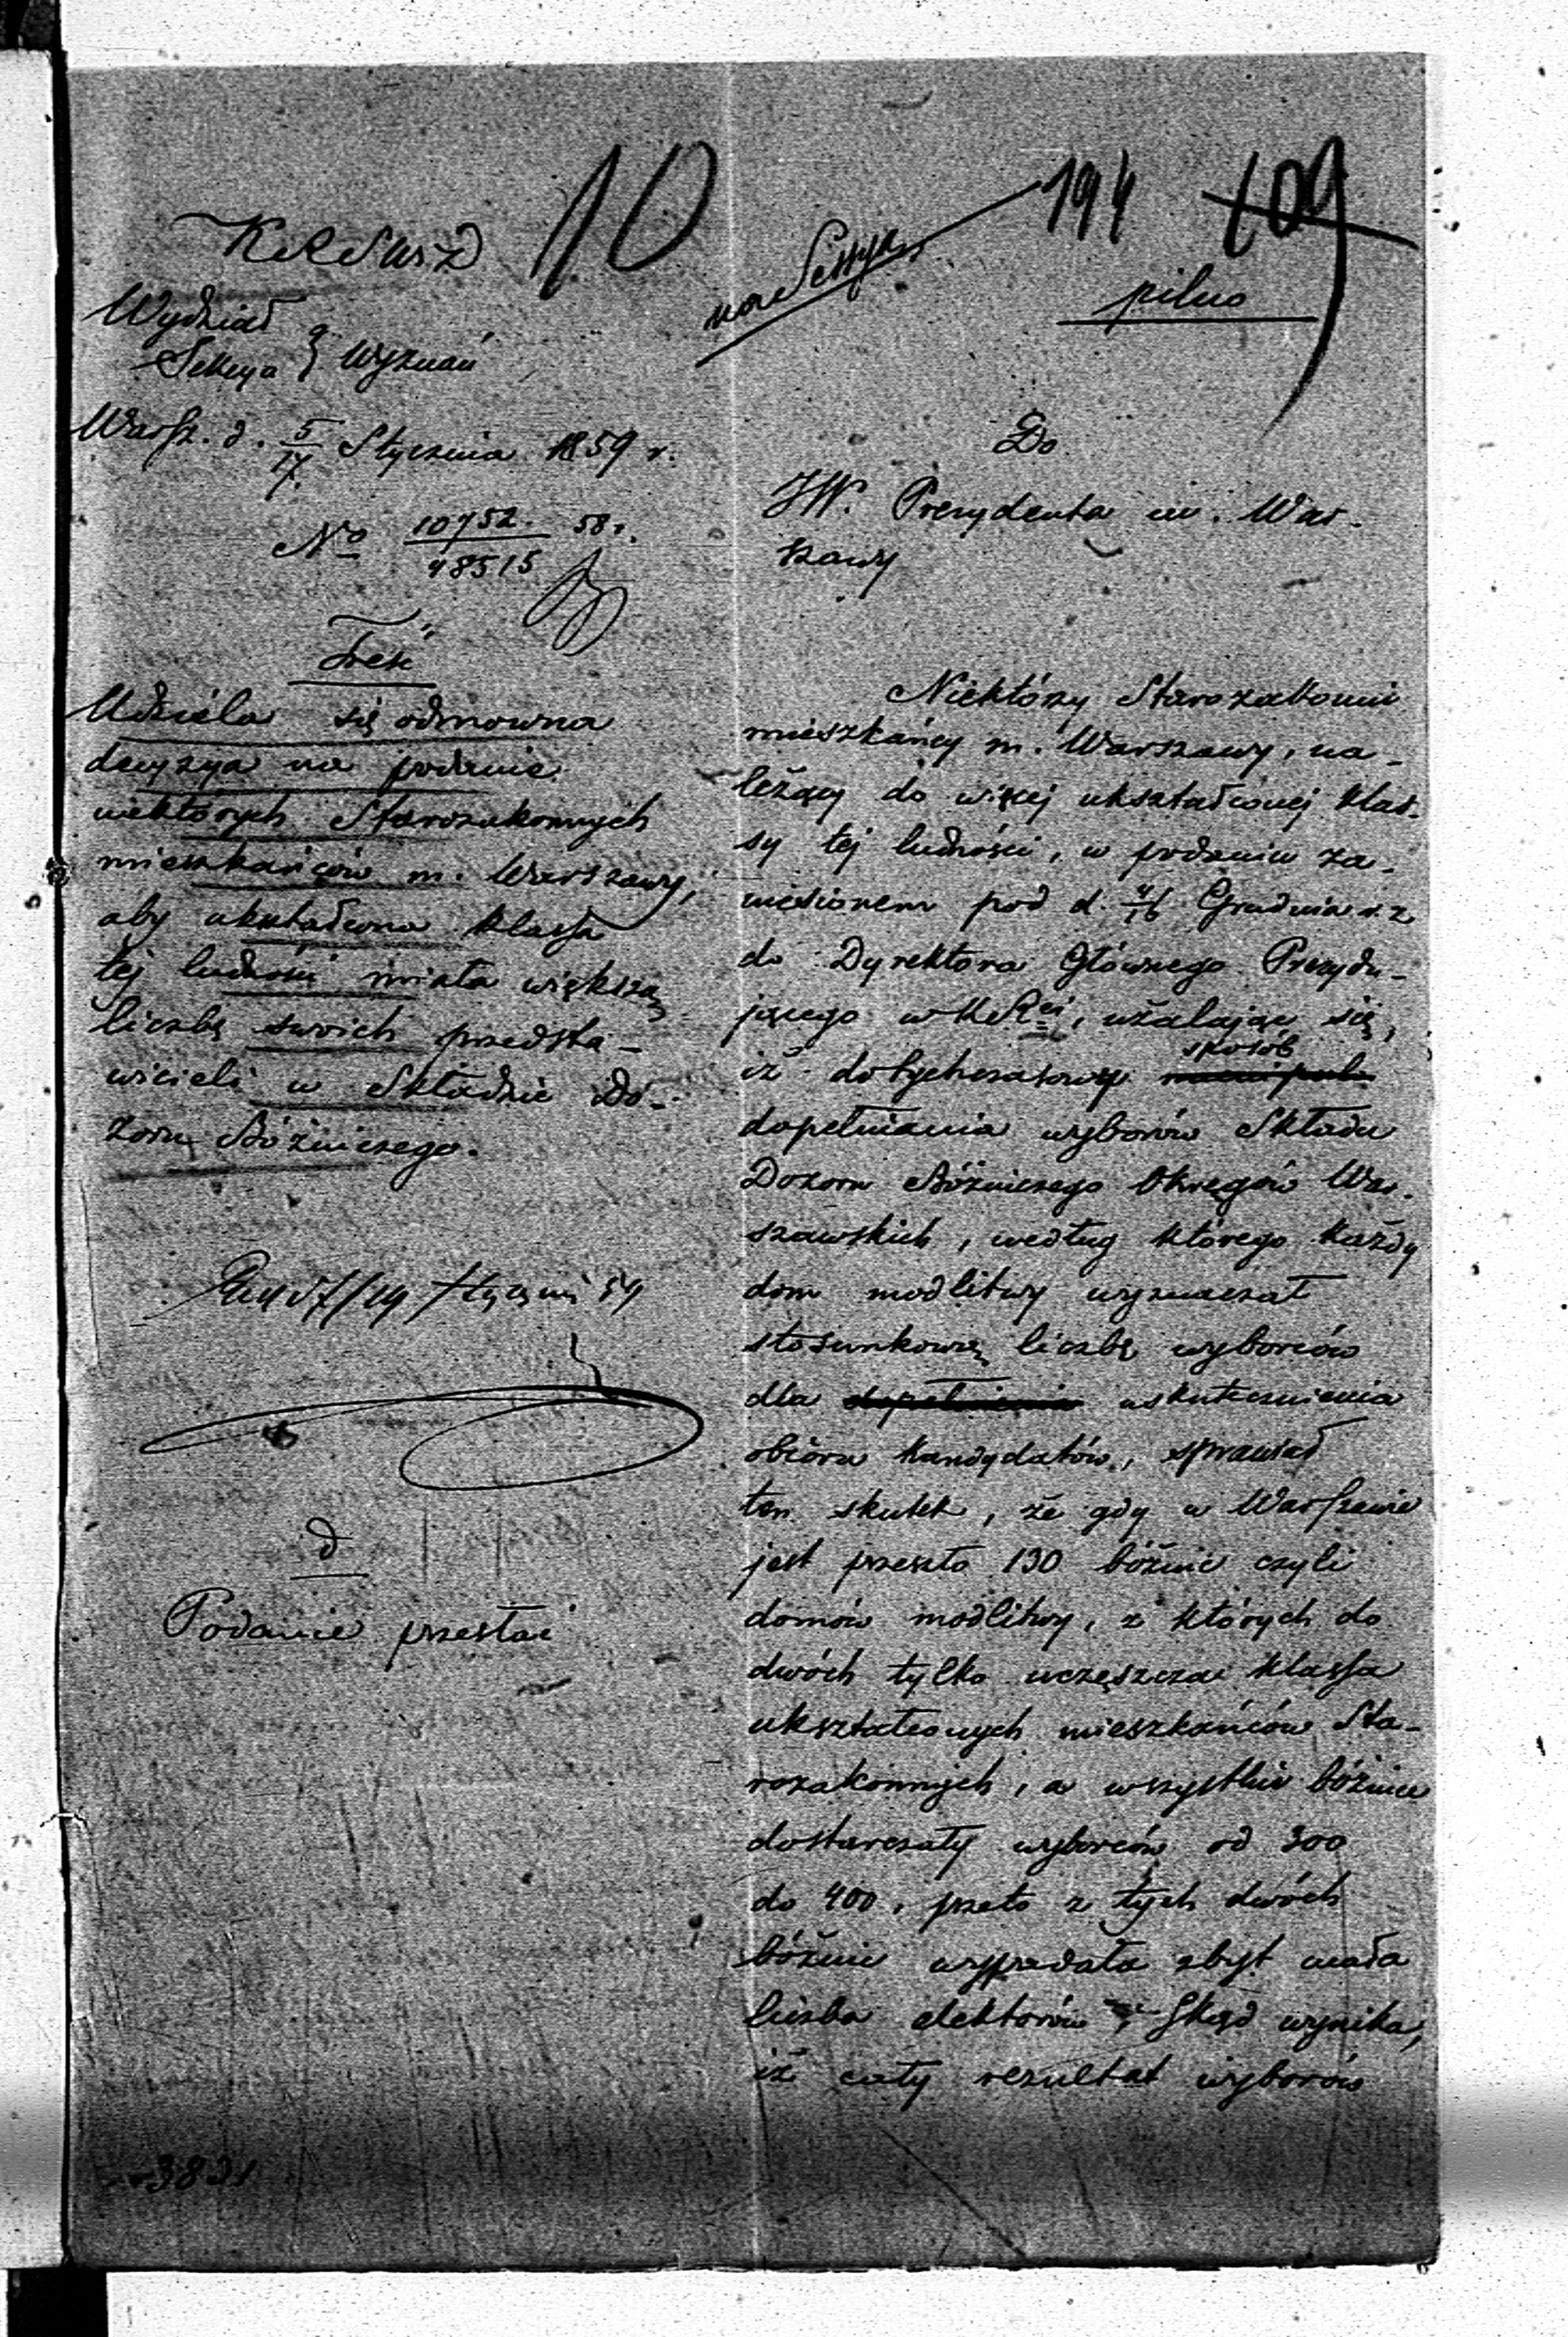 10
194 109
na Sessyą
pilno
Wydział
Sekcya } Wyznań
Warsz. d. 5/17 Stycznia 1859 r.
No 10752. 58 r.
48515
Treść
Udziela się odmowna
decyzya na podanie
niektórych Starozakonnych
mieszkańców m. Warszawy,
aby ukształcona klassa
tej ludności miała większą
liczbę swoich przedsta-
wicieli w Składzie Do-
zoru Bóźniczego.
Podanie przesłać
3821
Do
JW. Prezydenta m. War-
szawy
Niektórzy Starozakonni
mieszkańcy m. Warszawy, na-
leżący do więcej ukształconej klas-
sy tej ludności, w podaniu za-
niesionem pod d. 4/16 Grudnia r. z
do Dyrektora Głównego Prezydu-
jącego w KRei, użalając się,
iż dotychczasowy sposób
dopełniania wyborów Składu
Dozoru Bóżniczego Okręgów War-
szawskich, według którego każdy
dom modlitwy wyznaczał
stosunkową liczbę wyborców
dla dopełnienia uskutecznienia
obioru kandydatów, sprawiał
ten skutek, że gdy w Warszawie
jest przeszło 130 bóżnic czyli
domów modlitwy, z których do
dwóch tylko uczęszcza klassa
ukształconych mieszkańców Sta-
rozakonnych, a wszystkie bóżnice
dostarczały wyborców od 300
do 400, przeto z tych dwóch
bóżnic wypadała zbyt mała
liczba elektorów Skąd wynika,
iż cały rezultat wyborów